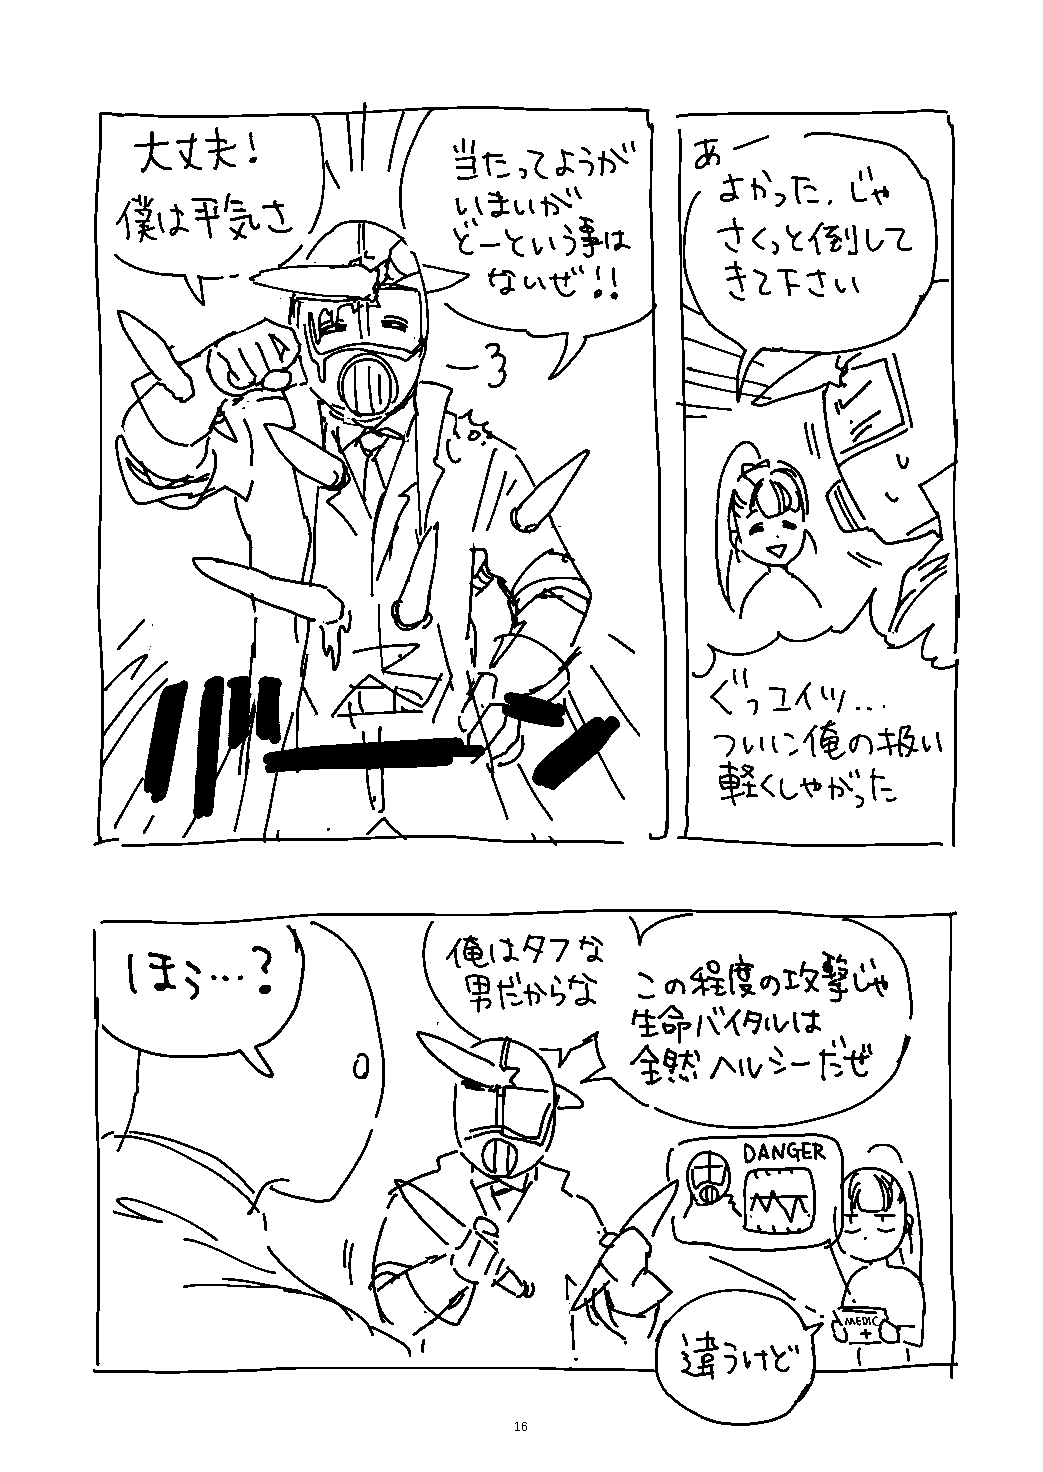 あー
よかった.じゃ
さくっと倒して
きて下さい
ぐっコイツ...
ついに俺の扱い
軽くしやがった
当たってようが
いまいが
どーという事は
ないぜ!!
大丈夫!
僕は平気さ
この程度の攻撃じゃ
生命バイタルは
全然ヘルシーだぜ
俺はタフな
男だからな
DANGER
MEDIC
+
違うけど
ほぅ…?
16